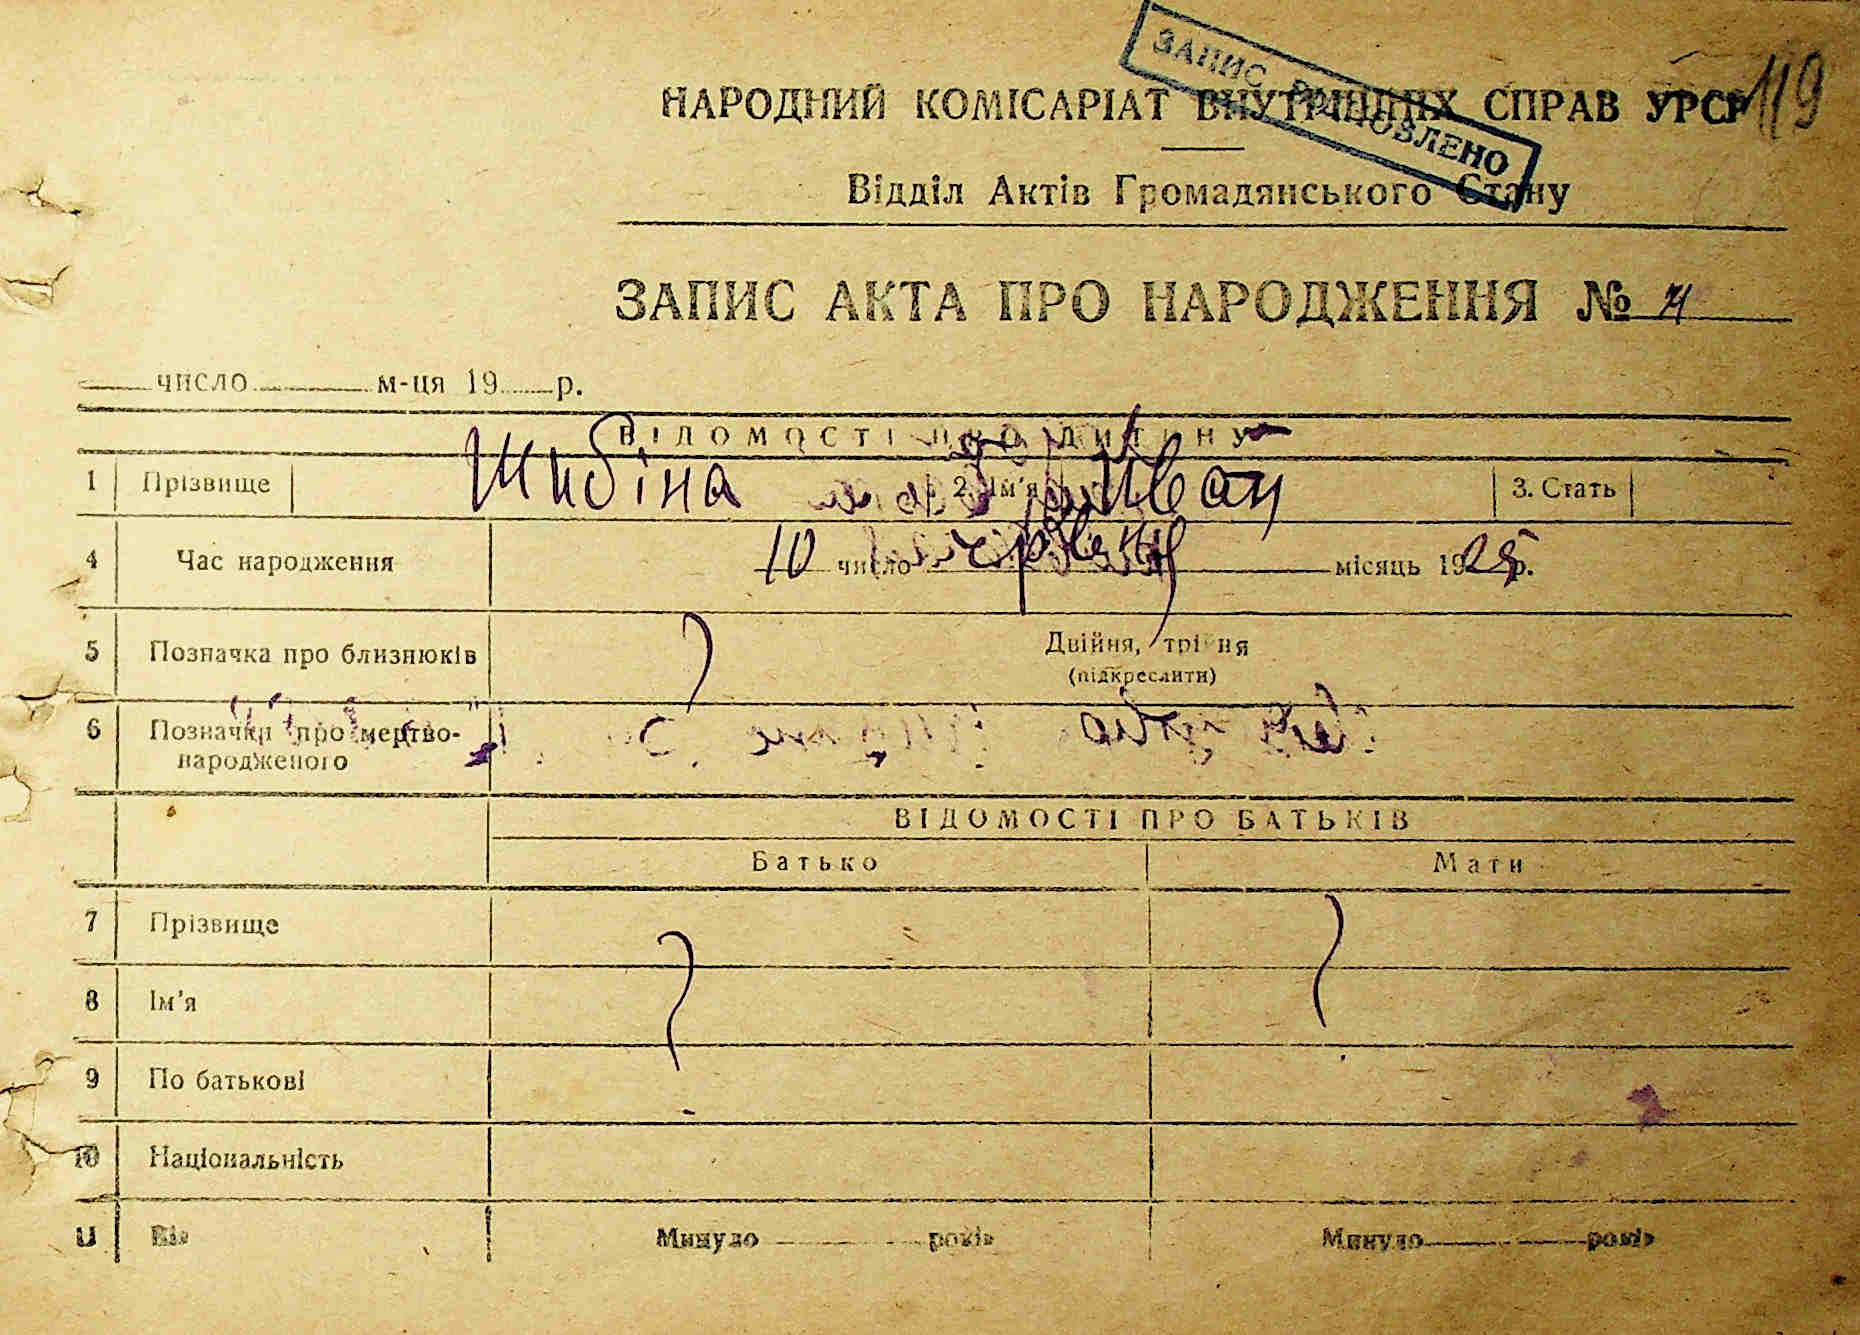 ЗАПИС ВІДНОВЛЕНО
119
НАРОДНИЙ КОМІСАРІАТ ВНУТРІШНІХ СПРАВ УРСР
Відділ Актів Громадянського Стану
ЗАПИС АКТА ПРО НАРОДЖЕННЯ №
число м-ця 19 р.
ВІДОМОСТІ ПРО ДИТИНУ
1 Прізвище Шибіна 2. Ім'я Іван 3. Стать
4 Час народження 10 число червня місяць 1925 р.
5 Позначка про близнюків Двійня, трійня
(підкреслити)
6 Позначки про мертво-
народженого
ВІДОМОСТІ ПРО БАТЬКІВ
Батько Мати
7 Прізвище
8 Ім'я
9 По батькові
10 Національність
11 Вік Минуло років Минуло років